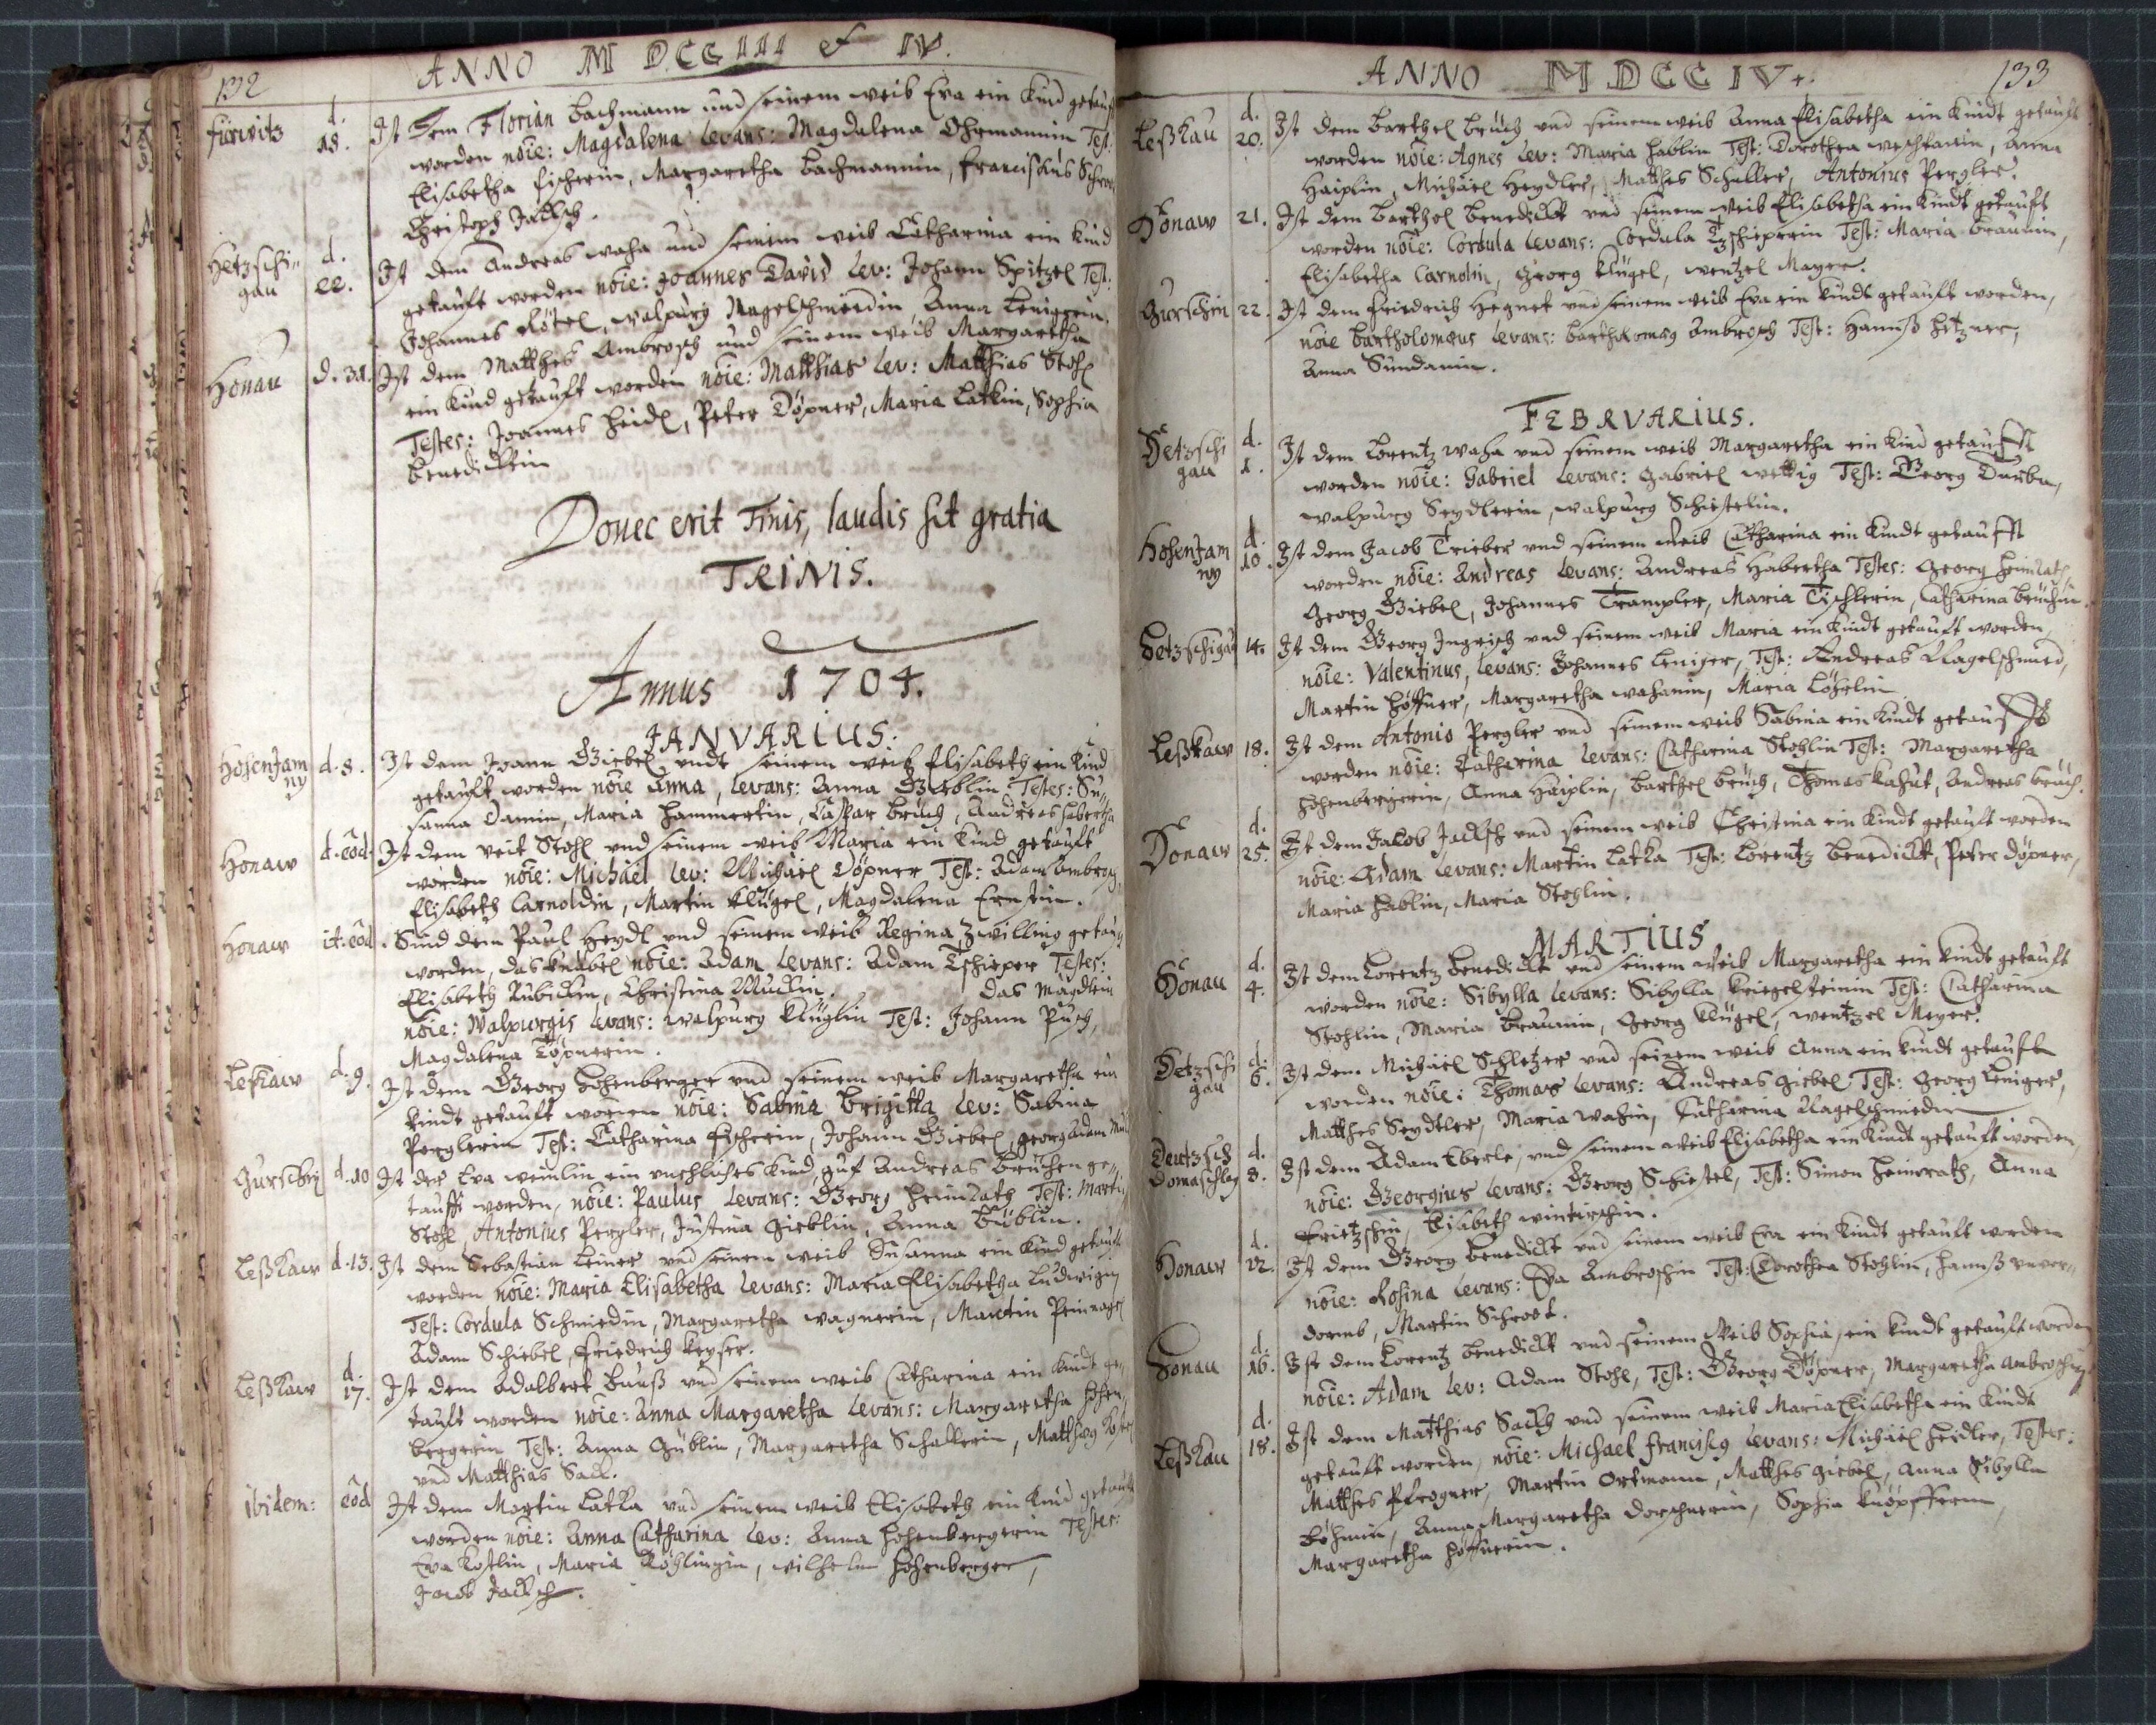 132
ANNO M DCCIII et IV.
fürwitz d. 18. Ist dem Florian Bachmann und seinem weib Eva ein Kind getauft
worden noie: Magdalena Levans: Magdalena Test:
Elisabetha fischerin, Margaretha Bachmannin, Franciskus
Christoph Jacksch.
Hetzschi-
gau d. 22. Ist dem Andreas waha und seinem weib Catharina ein Kind
getauft worden noie: Joannes David Lev: Johann Spitzel Test:
Johannes Rötel, walpurg Nagelschmiedin, Anna Lenigerin.
Honau d. 31. Ist dem Matthes Ambrosch und seinem weib Margaretha
ein Kind getauft worden noie: Matthias Lev: Matthias Stohl
Testes: Joannes heidl, Peter Döpner, Maria Latkin, Sophia
Benedicktin
Donec erit Finis, laudis sit gratia
TRINIS.
Annus 1704.
JANVARIUS:
Hosenjam
ny d. 8. Ist dem Joann Giebel undt seinem weib Elisabeth ein Kind
getauft worden noie Anna, Levans: Anna Testes: Su-
sanna Damin, Maria hammertin, Caspar Bruch, Andreas habertha
Honaw d. eod. Ist dem veit Stohl und seinem weib Maria ein Kind getauft
worden noie: Michael Lev: Michael Döpner Test: Adam Ambrosch,
Elisabeth Carnoldin, Martin Klügel, Magdalena Ernstin.
Honaw it. eod. Sind dem Paul Heydl und seinem weib Regina Zwilling getauft
worden, das Knäbel noie: Adam Levans: Adam Tschieper Testes:
Elisabeth Christina das Mägdlein
noie: Walpurgis Levans: walpurg Klüglin Test: Johann Pusch,
Magdalena Töpnerin.
Leskaw d. 9. Ist dem Georg Hohenberger und seinem weib Margaretha ein
kindt getauft worden noie: Sabina Brigitta Lev: Sabina
Perglerin Test: Catharina fischerin, Johann Giebel, Georg Adam
d. 10 Ist der Eva ein unehliches Kind, auf Andreas Bruchen ge-
tauft worden, noie: Paulus Levans: Georg heimrath, Test: Martin
Stohl, Antonius Pergler, Justina Gieblin, Anna
Leßkaw d. 13. Ist dem Sebastian Leiner und seinem weib Susanna ein Kind getauft
worden noie: Maria Elisabetha Levans: Maria Elisabetha Ludwigin
Test: Cordula Schmiedin, Margaretha wagnerin, Martin
Adam Schiebel, Friedrich Keyser.
Leßkaw d. 17. Ist dem Adalbert und seinem weib Catharina ein kindt ge-
tauft worden noie: Anna Margaretha Levans: Margaretha hohen-
bergerin Test: Anna Margaretha Schallerin,
und Matthias Sack.
ibidem: eod Ist dem Martin Latka und seinem weib Elisabeth ein Kind getauft
worden noie: Anna Catharina Lev: Anna hohenbergerin Testes:
Eva Kostlin, Maria wilhelm hohenberger,
Jacob Jacksch.
ANNO MDCCIV. 133
Leßkau d. 20. Ist dem Barthel Bruch und seinem weib Anna Elisabetha ein kindt getauft
worden noie: Agnes Lev: Maria hablin Test: Dorothea Anna
Haiplin, Michäel Heydler, Matthes Schaller, Antonius Pergler.
Honaw 21. Ist dem Barthel Benedickt und seinem weib Elisabetha ein kindt getauft
worden noie: Cordula Levans: Cordula Tzschieperin Test: Maria Braunin,
Elisabetha Carnolin, Georg Klügel, wentzel Mayer.
22. Ist dem Friedrich Hegnet und seinem weib Eva ein kindt getauft worden,
noie Bartholomæus Levans: Bartholomæg Ambrosch Test: Hannß
Anna
FEBRVARIUS.
Hetzschi
gau d. 1. Ist dem Lorentz waha und seinem weib Margaretha ein kind getaufft
worden noie: Gabriel Levans: Gabriel wettig Test: Georg
walpurg Seydlerin, walpurg Schiestelin.
Hosenjam
ny d. 10. Ist dem Jacob Trieber und seinem weib Catharina ein Kindt getaufft
worden noie: Andreas Levans: Andreas Habertha Testes: Georg heimrath,
Georg Giebel, Johannes Trampler, Maria Tischlerin, Catharina Bruchin.
Hetzschigau 14. Ist dem Georg Ingrisch und seinem weib Maria ein kindt getauft worden,
noie: Valentinus, Levans: Johannes Leniger, Test: Andreas Nagelschmied,
Martin höffner, Margaretha wahanin, Maria Löhrlin
Leßkaw 18. Ist dem Antonio Pergler und seinem weib Sabina ein Kindt getaufft
worden noie: Catharina Levans: Catharina Stohlin Test: Margaretha
hohenbergerin, Anna Haiplin, Barthel Bruch, Thomas Andreas Bruch.
Honaw d. 25. Ist dem Jakob Jacksch und seinem weib Christina ein kindt getauft worden
noie: Adam Levans: Martin Latka Test: Lorentz Benedickt, Peter Döpner,
Maria hablin, Maria Stohlin.
MARTIUS
Honau d. 4. Ist dem Lorentz Benedickt und seinem weib Margaretha ein kindt getauft
worden noie: Sibylla Levans: Sibylla Kriegelsteinin Test: Catharina
Stohlin, Maria Braunin, Georg Klügel, wentzel Meyer.
Hetzschi
gau d. 6. Ist dem Michäel Schletzer und seinem weib Anna ein kindt getauft
worden noie: Thomas Levans: Andreas Giebel Test: Georg Leniger,
Matthes Seydtler, Maria wahin, Catharina Nagelschmiedin
Deutzsch
Domaschlag d. 8. Ist dem Adam Eberle, und seinem weib Elisabetha ein kindt getauft worden,
noie: Georgius Levans: Georg Schiestel, Test: Simon heimrath, Anna
Fritzschin, Elisabeth winterschin.
Honaw d. 12. Ist dem Georg Benedickt und seinem weib Eva ein Kindt getauft worden
noie: Rosina Levans: Eva Ambroschin Test: Dorothea Stohlin, hannß unver-
dormb, Martin Schrodt.
Honau d. 16. Ist dem Lorentz Benedickt und seinem Weib Sophia, ein kindt getauft worden
noie: Adam Lev: Adam Stohl, Test: Georg Döpner, Margaretha Ambroschin
Leßkau d. 18. Ist dem Matthias Sackh und seinem weib Maria Elisabetha ein kindt
getauft worden, noie: Michael Franciscg Levans: Michäel heidler, Testes:
Matthes Pfrogner, Martin Ortmann, Matthes Giebel, Anna Sibylla
Böhmin, Anna Margaretha Dorschnerin, Sophia Knöpfferin,
Margaretha höffnerin.